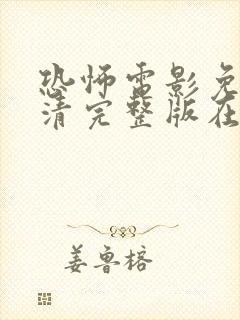 恐怖电影免
清完整版在
姜鲁榕